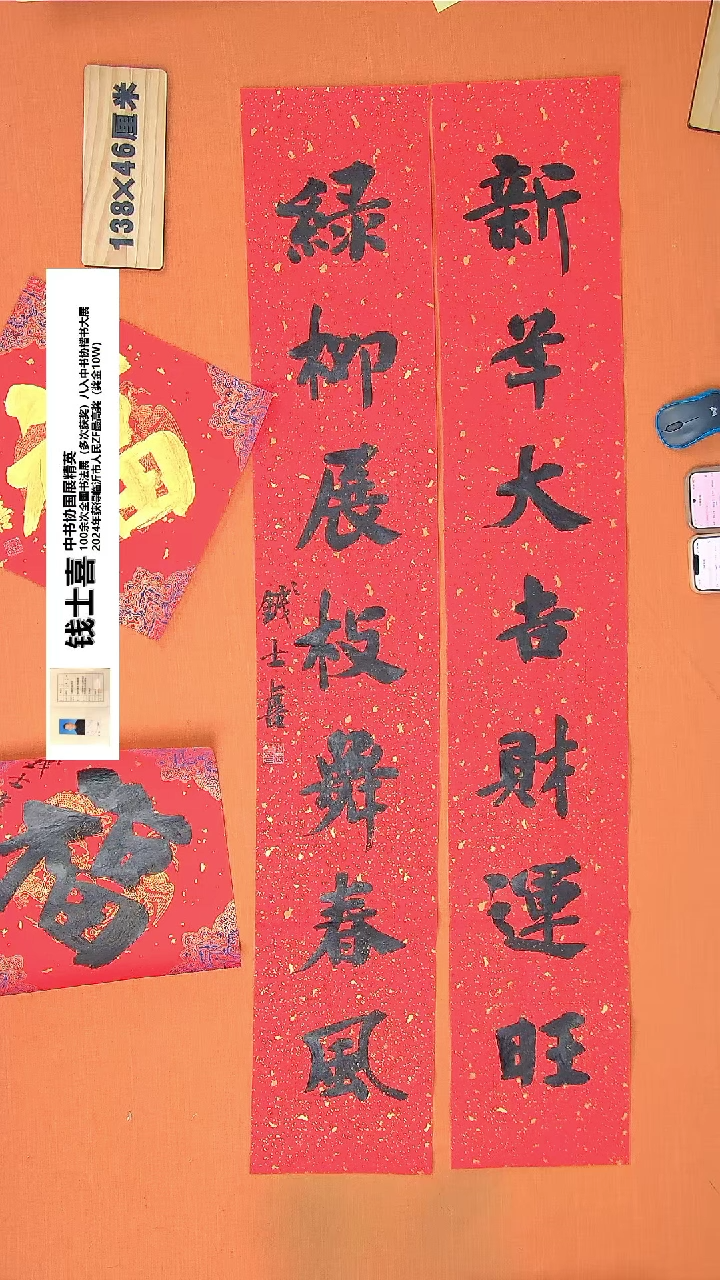 新年大吉財運旺
綠柳展枝舞春風
钱士喜
138×46厘米
钱士喜 中书协国展精英
100余次全国书法展（多次获奖）八入中书协楷书大展
2024年获得临沂市人民ZF最高奖（奖金10W）
福
福